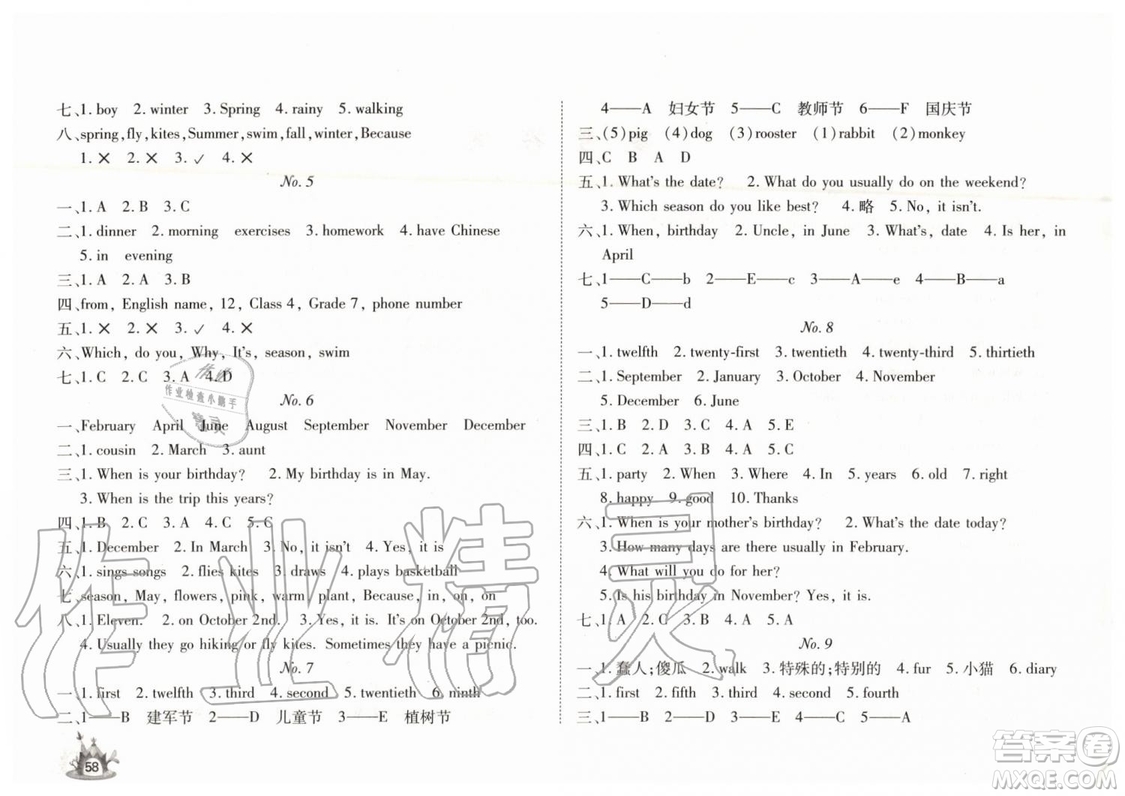 七、1. boy 2. winter 3. Spring 4. rainy 5. walking
八、spring, fly, kites, Summer, swim, fall, winter, Because
1. ✕ 2. ✕ 3. ✓ 4. ✕
No. 5
一、1. A 2. B 3. C
二、1. dinner 2. morning exercises 3. homework 4. have Chinese
5. in evening
三、1. A 2. A 3. B
四、from, English name, 12, Class 4, Grade 7, phone number
五、1. ✕ 2. ✕ 3. ✓ 4. ✕
六、Which, do you, Why, It's, season, swim
七、1. C 2. C 3. A 4. D
No. 6
一、February April June August September November December
二、1. cousin 2. March 3. aunt
三、1. When is your birthday? 2. My birthday is in May.
3. When is the trip this years?
四、1. B 2. C 3. A 4. B 5. C
五、1. December 2. In March 3. No, it isn't 4. Yes, it is
六、1. sings songs 2. flies kites 3. draws 4. plays basketball
七、season, May, flowers, pink, warm, plant, Because, in, on, on
八、1. Eleven. 2. on October 2nd. 3. Yes, it is. It's on October 2nd, too.
4. Usually they go hiking or fly kites. Sometimes they have a picnic.
No. 7
一、1. first 2. twelfth 3. third 4. second 5. twentieth 6. ninth
二、1——B 建军节 2——D 儿童节 3——E 植树节
58
4——A 妇女节 5——C 教师节 6——F 国庆节
三、(5)pig (4)dog (3)rooster (1)rabbit (2)monkey
四、C B A D
五、1. What's the date? 2. What do you usually do on the weekend?
3. Which season do you like best? 4. 略 5. No, it isn't.
六、1. When, birthday 2. Uncle, in June 3. What's, date 4. Is her, in
April
七、1——C——b 2——E——c 3——A——e 4——B——a
5——D——d
No. 8
一、1. twelfth 2. twenty-first 3. twentieth 4. twenty-third 5. thirtieth
二、1. September 2. January 3. October 4. November
5. December 6. June
三、1. B 2. D 3. C 4. A 5. E
四、1. C 2. A 3. B 4. A 5. C
五、1. party 2. When 3. Where 4. In 5. years 6. old 7. right
8. happy 9. good 10. Thanks
六、1. When is your mother's birthday? 2. What's the date today?
3. How many days are there usually in February.
4. What will you do for her?
5. Is his birthday in November? Yes, it is.
七、1. A 2. C 3. B 4. A 5. C
No. 9
一、1. 蠢人;傻瓜 2. walk 3. 特殊的;特别的 4. fur 5. 小猫 6. diary
二、1. first 2. fifth 3. third 4. second 5. fourth
三、1——C 2——E 3——B 4——D 5——A
作业检查小帮手
作业精灵
答案圈
MXQE.COM